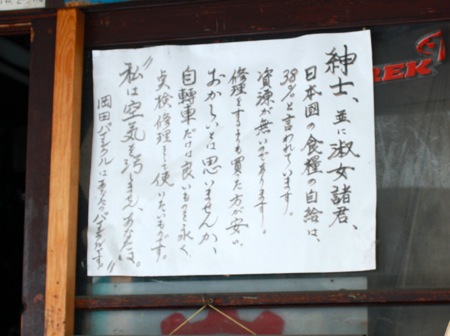 紳士、並に淑女諸君、
日本国の食糧の自給は、
38%と言われています。
資源が無いのであります。
修理をするよりも買た方が安い、
おかしいとは思いませんか、
自轉車だけは良いものを永く、
点検修理をして使いたいものです。
"私は空気を汚しません、あなたは。
岡田バイシクルはあなたのバイシクルです。"
REK